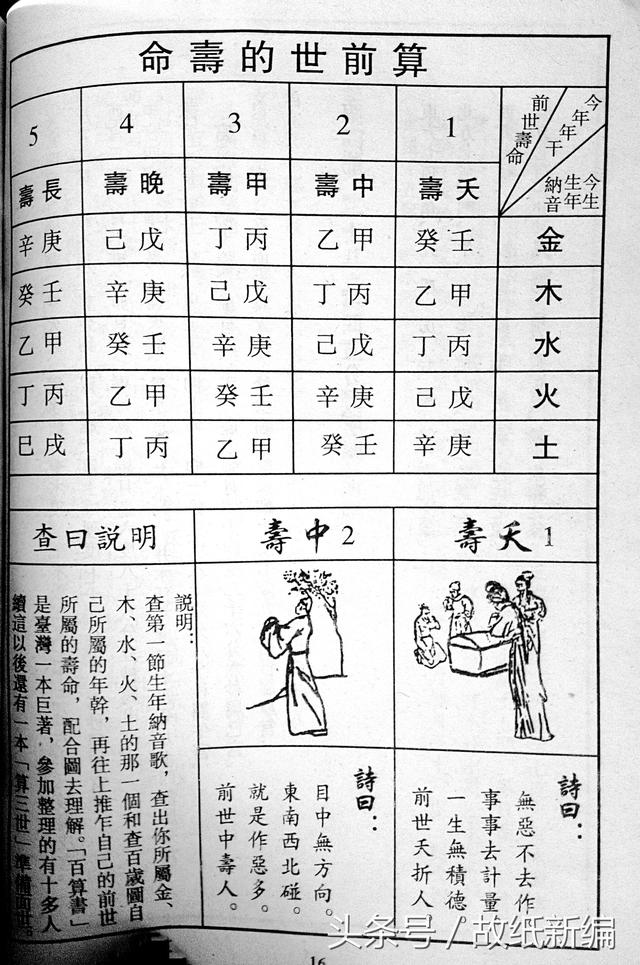 算前世的壽命
今年年干
前世壽命
今生生年納音
1 2 3 4 5
夭壽 中壽 甲壽 晚壽 長壽
金 壬癸 甲乙 丙丁 戊己 庚辛
木 甲乙 丙丁 戊己 庚辛 壬癸
水 丙丁 戊己 庚辛 壬癸 甲乙
火 戊己 庚辛 壬癸 甲乙 丙丁
土 庚辛 壬癸 甲乙 丙丁 戌巳
1夭壽
詩曰：
無惡不去作
事事去計量
一生無積德。
前世夭折人。
2中壽
詩曰：
目中無方向。
東南西北碰。
就是作惡多。
前世中壽人。
查曰説明
説明：
查第一節生年納音歌，查出你所屬金、
木、水、火、土的那一個和查百歲圖自
己所屬的年幹，再往上推乍自己的前世
所屬的壽命，配合圖去理解。「百算書」
是臺灣一本巨著，參加整理的有十多人
續這以後還有一本「算三世」準備面世。
16
头条号/故纸新编